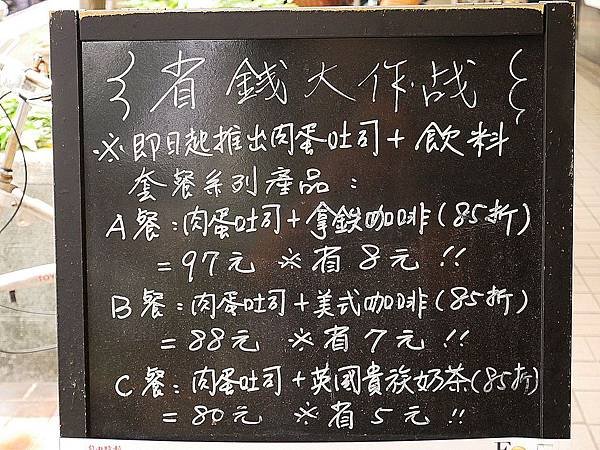 省錢大作战
※即日起推出肉蛋吐司+飲料
套餐系列產品:
A餐:肉蛋吐司+拿鉄咖啡(85折)
=97元 ※省8元!!
B餐:肉蛋吐司+美式咖啡(85折)
=88元 ※省7元!!
C餐:肉蛋吐司+英國貴族奶茶(85折)
=80元 ※省5元!!